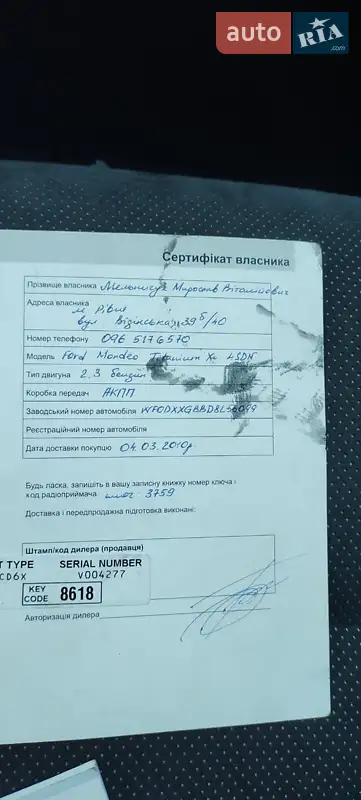 auto RIA .com
Сертифікат власника
Прізвище власника Мельничук Мирослав Віталійович
Адреса власника м. Рівне
вул 39б/40
Номер телефону 096 5176570
Модель Ford Mondeo Titanium X 4SDN
Тип двигуна 2,3 бензин
Коробка передач АКПП
Заводський номер автомобіля
Реєстраційний номер автомобіля
Дата доставки покупцю 04.03.2010р.
Будь ласка, запишіть в вашу записну книжку номер ключа і
код радіоприймача 3759
Доставка і передпродажна підготовка виконані:
Штамп/код дилера (продавця)
T TYPE SERIAL NUMBER
CD6X V004277
KEY CODE 8618
Авторизація дилера